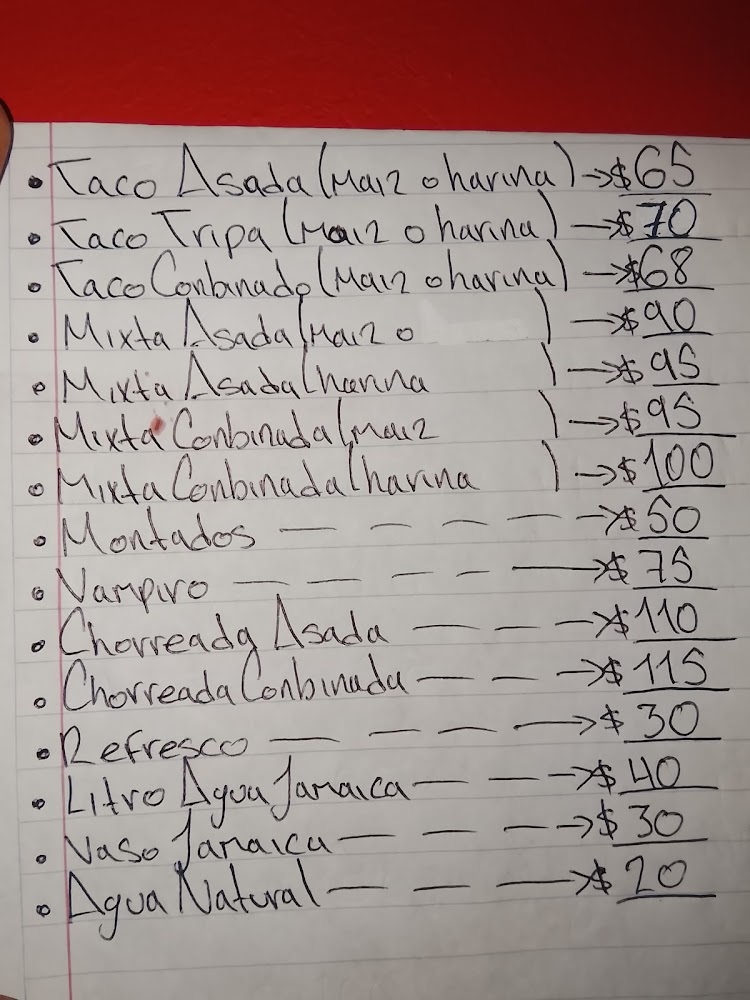 • Taco Asada (Maiz o harina) → $65
• Taco Tripa (Maiz o harina) → $70
• Taco Conbinado (Maiz o harina) → $68
• Mixta Asada (Maiz o ) → $90
• Mixta Asada (harina ) → $95
• Mixta Conbinada (maiz ) → $95
• Mixta Conbinada (harina ) → $100
• Montados — — — — → $50
• Vampiro — — — — → $75
• Chorreada Asada — — — → $110
• Chorreada Conbinada — — — → $115
• Refresco — — — → $30
• Litro Agua Jamaica — — — → $40
• Vaso Jamaica — — — → $30
• Agua Natural — — — → $20